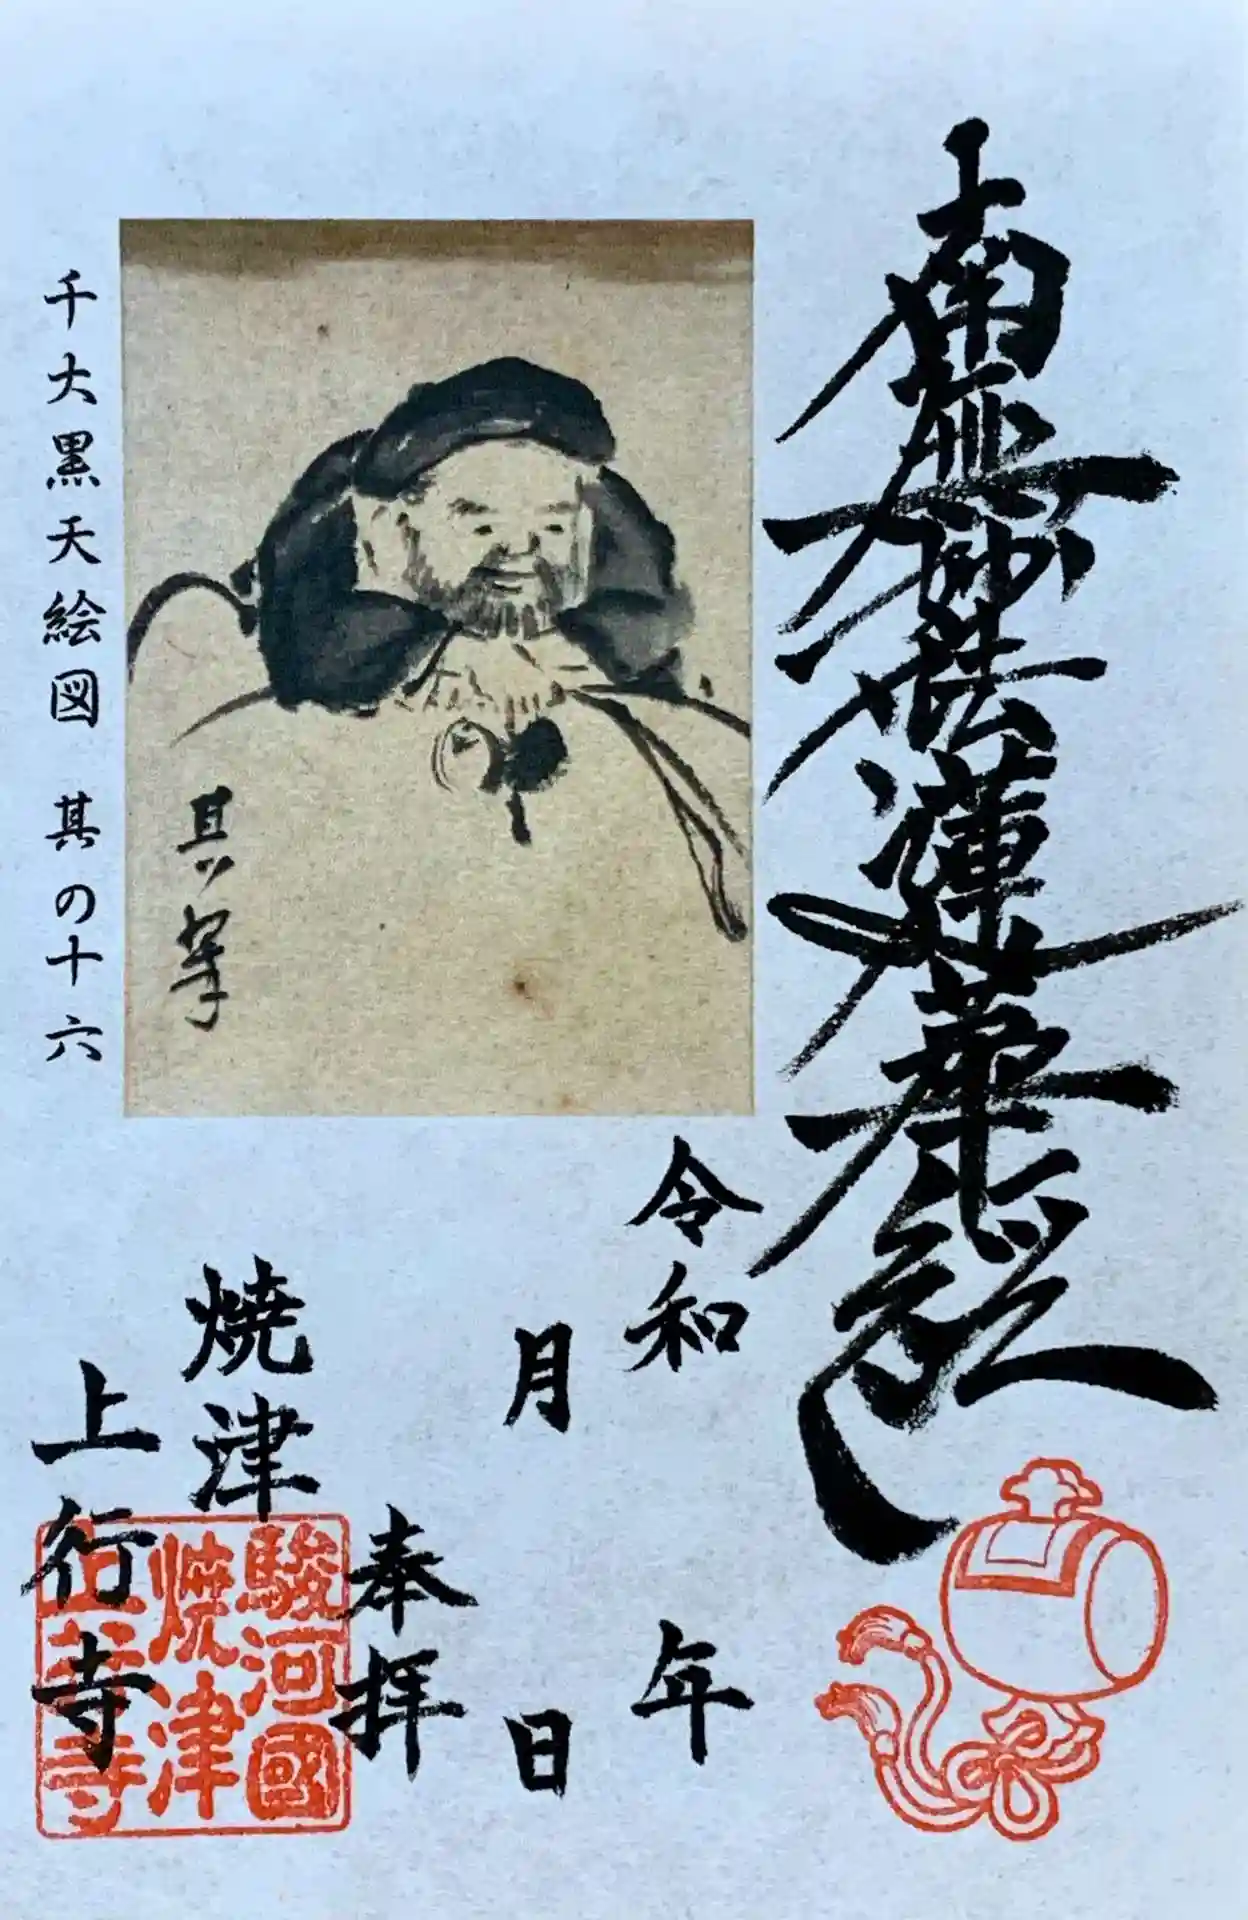 南無妙法蓮華経
令和 年
月 日
奉拝
焼津
上行寺
千大黒天絵図 其の十六
駿河國
焼津
上行寺